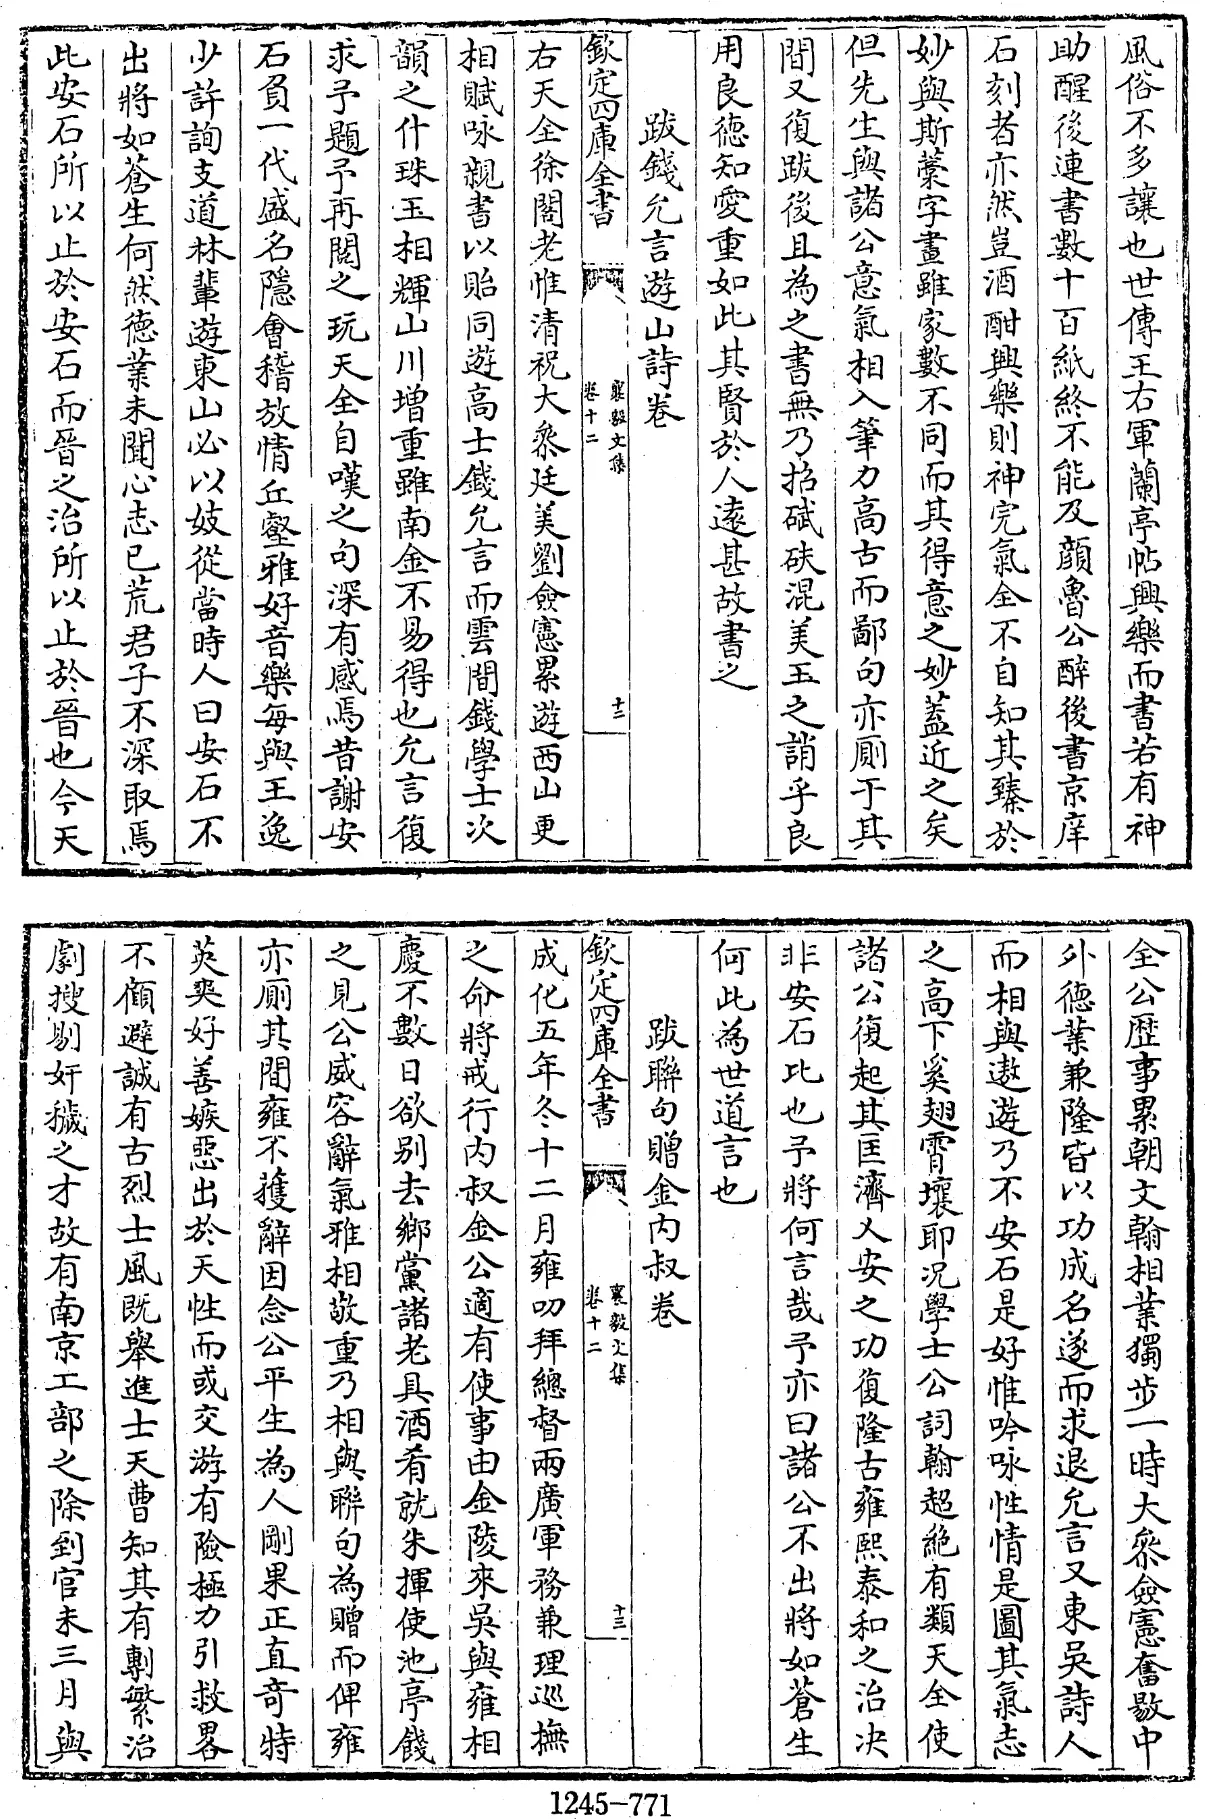 風俗不多讓也世傳王右軍蘭亭帖興樂而書若有神
助醒後連書數十百紙終不能及顔魯公醉後書京庠
石刻者亦然豈酒酣興樂則神完氣全不自知其臻於
妙與斯藁字畫雖家數不同而其得意之妙蓋近之矣
但先生與諸公意氣相入筆力高古而鄙句亦厠于其
間又復跋後且為之書無乃招碔砆混美玉之誚乎良
用良德知愛重如此其賢於人遠甚故書之
跋錢允言遊山詩卷
欽定四庫全書
襄毅文集
卷十二
十三
右天全徐閣老惟清祝大叅廷美劉僉憲累遊西山更
相賦咏親書以貽同遊高士錢允言而雲間錢學士次
韻之什珠玉相輝山川增重雖南金不易得也允言復
求予題予再閱之玩天全自嘆之句深有感焉昔謝安
石負一代盛名隱會稽放情丘壑雅好音樂每與王逸
少許詢支道林輩遊東山必以妓從當時人曰安石不
出將如蒼生何然德業未聞心志已荒君子不深取焉
此安石所以止於安石而晉之治所以止於晉也今天
全公歷事累朝文翰相業獨步一時大叅僉憲奮敭中
外德業兼隆皆以功成名遂而求退允言又東吳詩人
而相與遨遊乃不安石是好惟吟咏性情是圖其氣志
之高下奚翅霄壤耶况學士公詞翰超絶有類天全使
諸公復起其匡濟乂安之功復隆古雍熙泰和之治决
非安石比也予將何言哉予亦曰諸公不出將如蒼生
何此為世道言也
跋聯句贈金内叔卷
欽定四庫全書
襄毅文集
卷十二
十三
成化五年冬十二月雍叨拜總督兩廣軍務兼理巡撫
之命將戒行内叔金公適有使事由金陵來吳與雍相
慶不數日欲别去鄉黨諸老具酒肴就朱揮使池亭餞
之見公威容辭氣雅相敬重乃相與聯句為贈而俾雍
亦厠其間雍不獲辭因念公平生為人剛果正直奇特
英奭好善嫉惡出於天性而或交游有險極力引救畧
不顧避誠有古烈士風既舉進士天曹知其有剸繁治
劇搜剔奸穢之才故有南京工部之除到官未三月與
1245-771